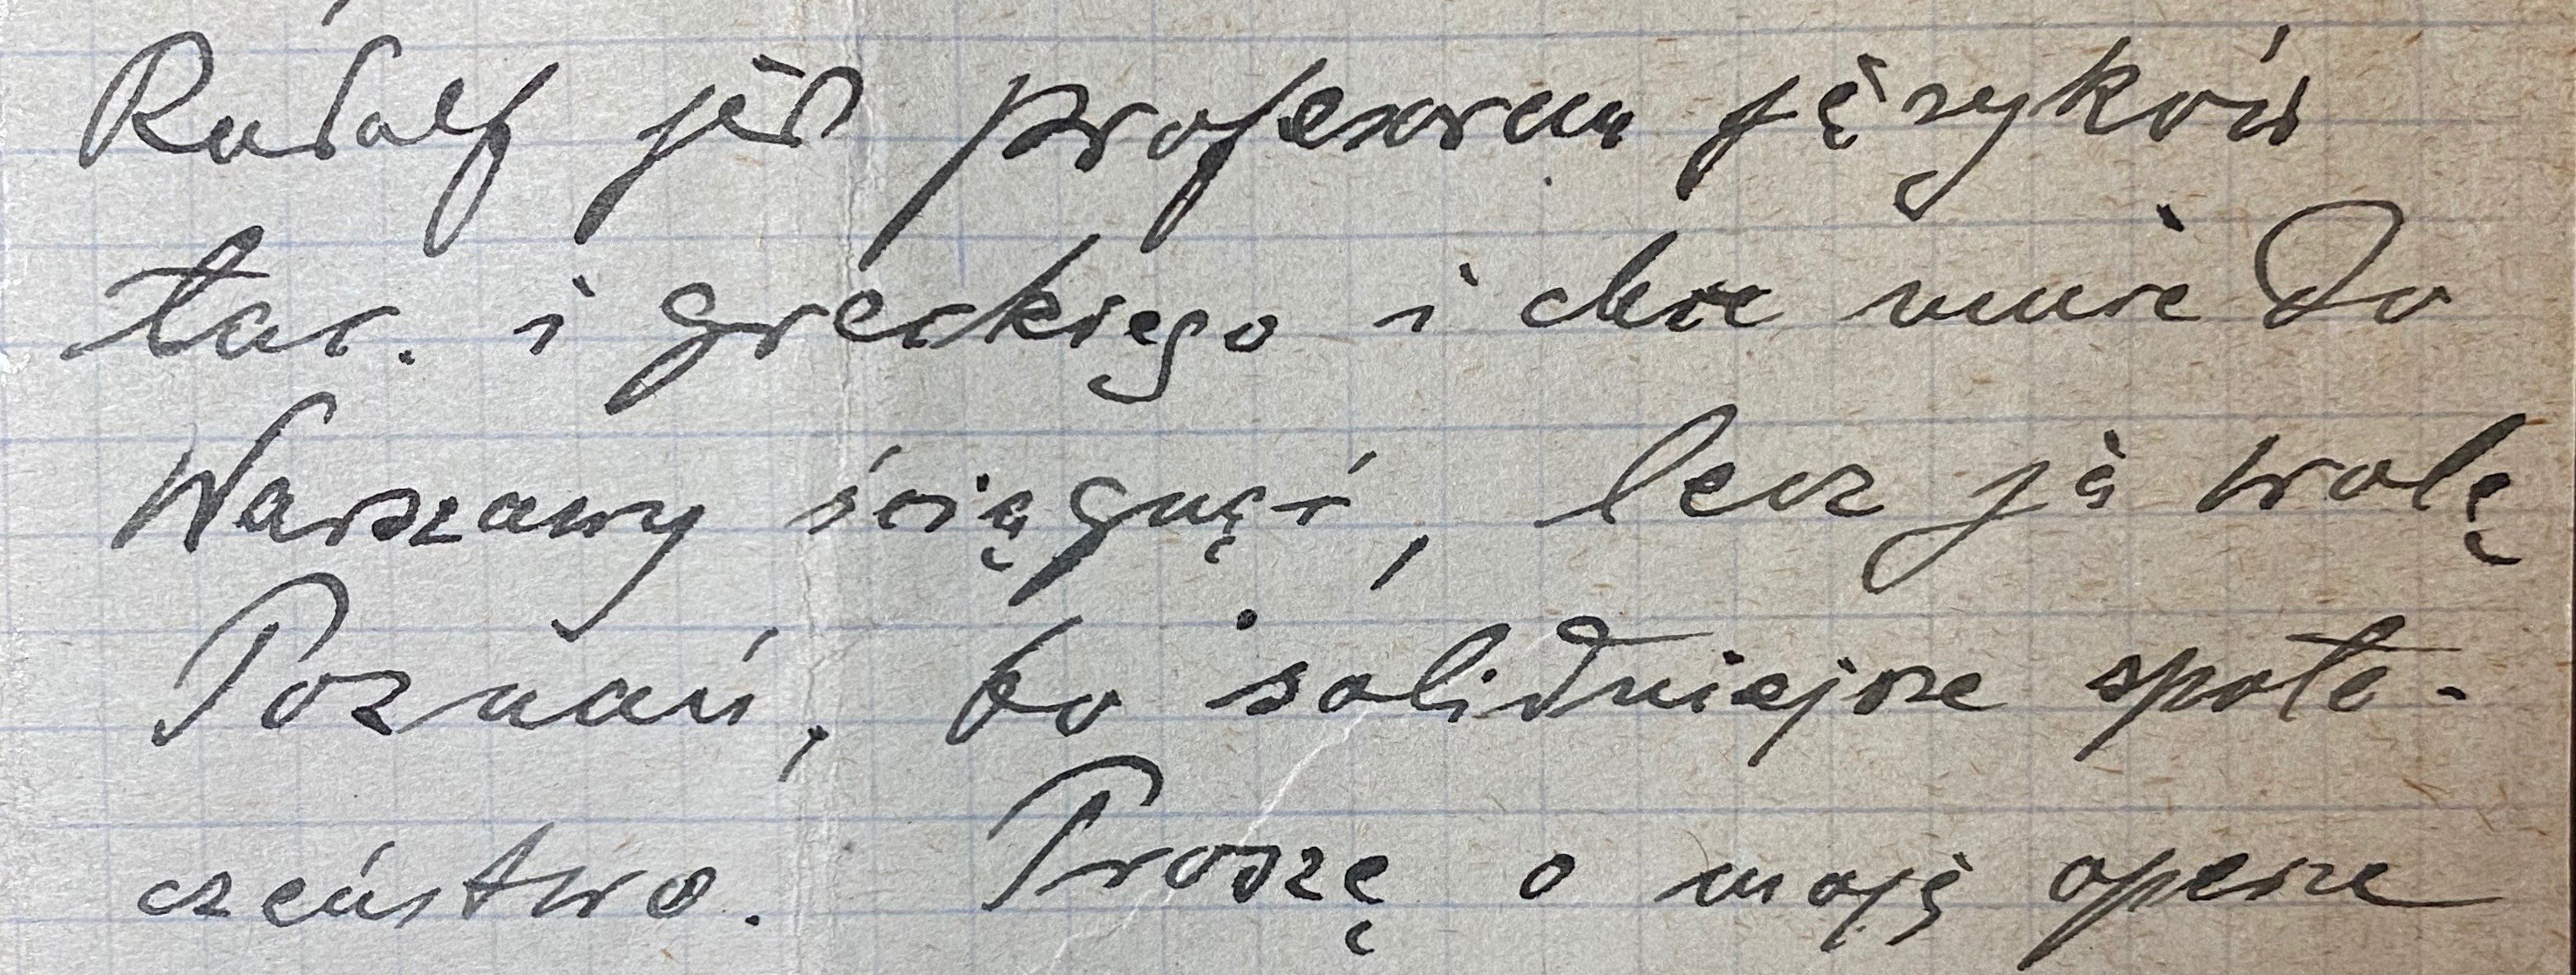 Rudolf jest profesorem języków
łac. i greckiego i chce mnie do
Warszawy ściągnąć, lecz ja wolę
Poznań, bo solidniejsze społe-
czeństwo. Proszę o moją